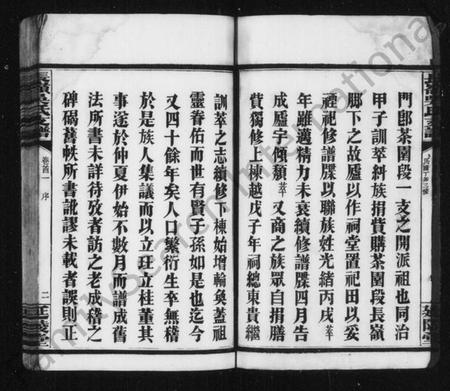 門郎茶園段一支之開派祖也同治
甲子訓萃糾族捐貲購茶園段長嶺
腳下之故廬以作祠堂置祀田以妥
禋祀修譜牒以聯族姓光緒丙戌萃
年雖邁精力未衰續修譜牒四月告
成廬宇傾頹萃又商之族眾自捐膳
貲獨修上棟越戊子年祠總東貴繼
訓萃之志續修下棟始增輪奐蓋祖
靈眷佑而世有賢子孫如是也迄今
又四十餘年矣人口繁衍生卒無稽
於是族人集議而以立玨立桂董其
事遂於仲夏伊始不數月而譜成舊
法所書未詳待攷者訪之老成稽之
碑碣舊帙所書訛謬未載者誤則正
卷首一 序
二